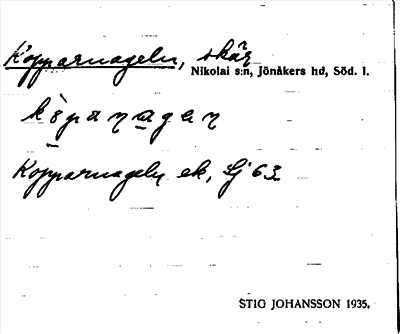 Kopparnageln, skär
Nikolai s:n, Jönåkers hd, Söd. l.
Kopparnageln ek, Lj 63
STIG JOHANSSON 1935.